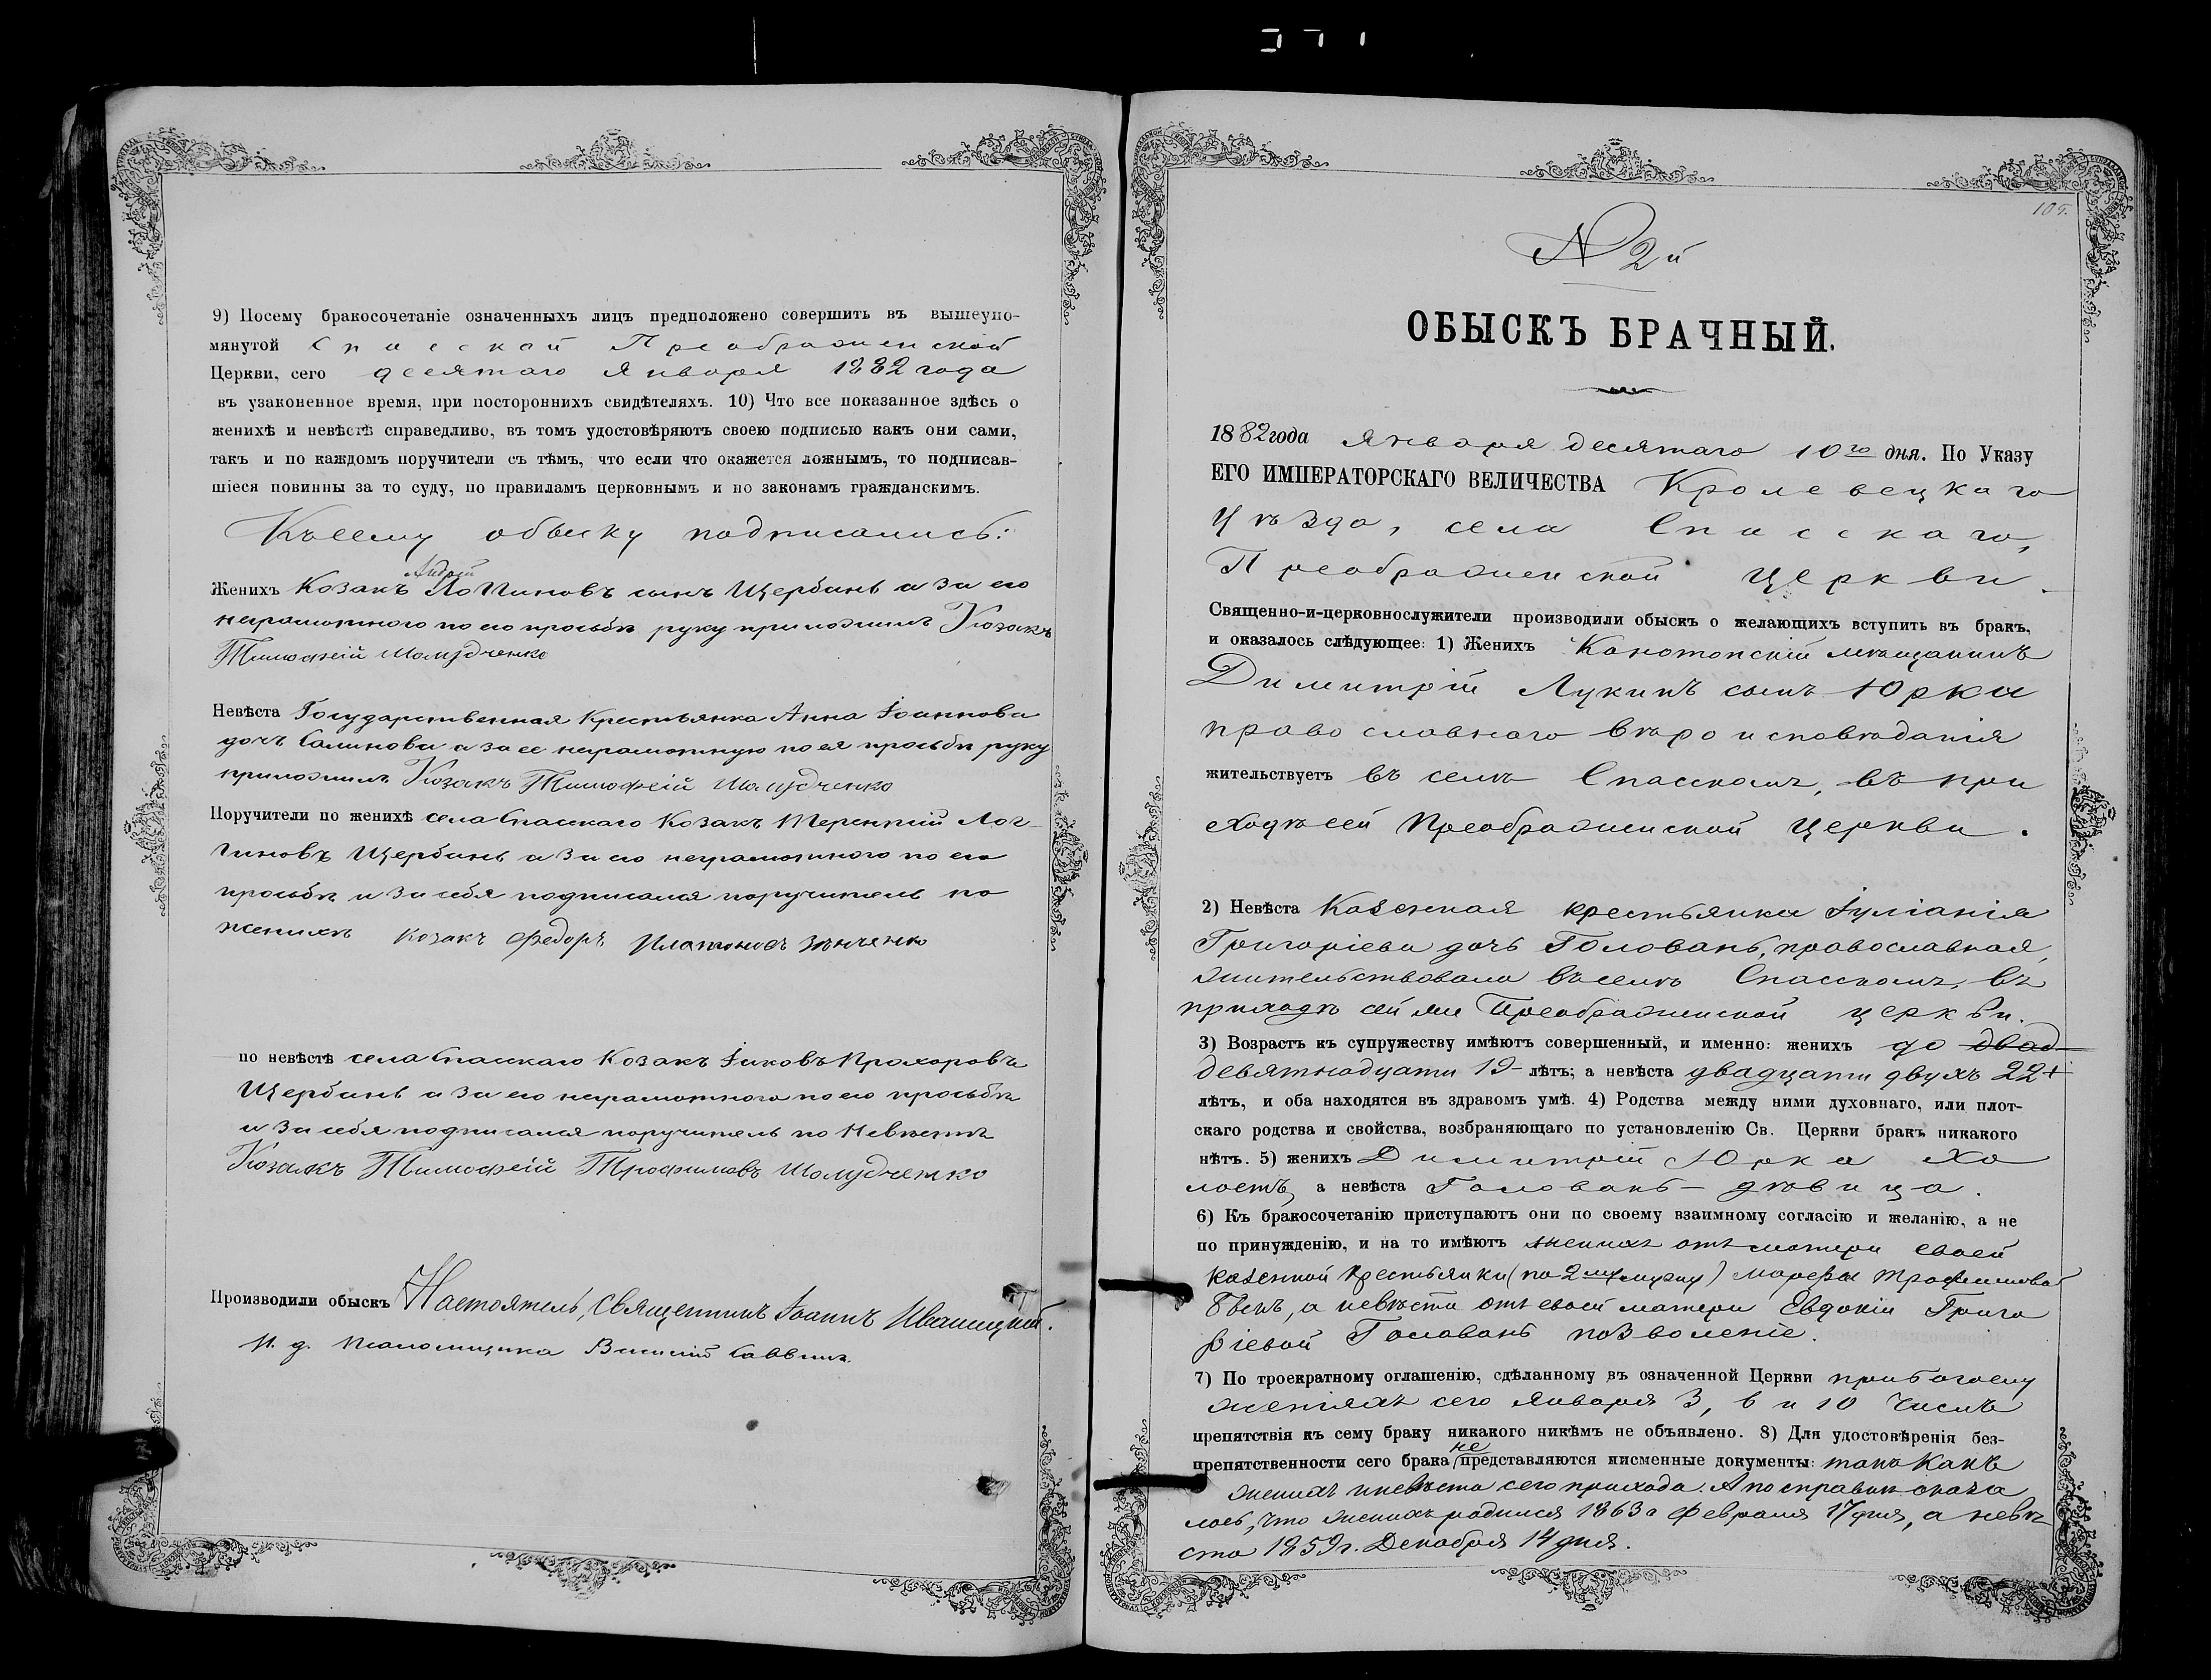 9) Посему бракосочетаніе означенныхъ лицъ предположено совершить въ вышеупо-
мянутой Спасской Преображенской
Церкви, сего десятаго Января 1882 года
въ узаконенное время, при постороннихъ свидѣтеляхъ. 10) Что все показанное здѣсь о
женихѣ и невѣстѣ справедливо, въ томъ удостовѣряютъ своею подписью какъ они сами,
такъ и по каждомъ поручители съ тѣмъ, что если что окажется ложнымъ, то подписав-
шіеся повинны за то суду, по правиламъ церковнымъ и по законамъ гражданскимъ.
Къ сему обыску подписались:
Андрей
Женихъ Козакъ Логгиновъ сынъ Щербань а за его
неграмотного по его просьбѣ руку приложилъ Козакъ
Тимофей Шолудченко
Невѣста Государственная Крестьянка Анна Іоаннова
дочь Салинова а за ее неграмотную по ея просьбѣ руку
приложилъ Козакъ Тимофей Шолудченко
Поручители по женихѣ села Спасскаго Козакъ Терентій Лог-
гиновъ Щербань а за его неграмотного по его
просьбѣ и за себя подписался поручитель по
женихѣ козакъ Федоръ Платоновъ Зѣнченко
по невѣстѣ села Спасскаго Козакъ Іаковъ Прохоровъ
Щербань а за его неграмотного по его просьбѣ
и за себя подписался поручитель по Невѣстѣ
Козакъ Тимофей Трофимовъ Шолудченко
Производили обыскъ Настоятель, Священникъ Іоаннъ Иваницкій.
И. д. псаломщика Василій Саввин
105.
№ 2й
ОБЫСКЪ БРАЧНЫЙ.
1882 года Января десятаго 10го дня. По Указу
ЕГО ИМПЕРАТОРСКАГО ВЕЛИЧЕСТВА Кролевецкаго
Уѣзда, села Спасскаго,
Преображенской Церкви
Священно-и-церковнослужители производили обыскъ о желающихъ вступить въ бракъ,
и оказалось слѣдующее: 1) Женихъ Конотопскій мѣщанинъ
Димитрій Лукинъ сынъ Юрка
православнаго вѣроисповѣданія
жительствуетъ въ селѣ Спасскомъ, въ при
ходѣ сей Преображенской Церкви.
2) Невѣста Казенная крестьянка Іуліанія
Григоріева дочь Головань, православная,
жительствовала въ селѣ Спасскомъ, въ
приходѣ сей же Преображенской церкви.
3) Возрастъ къ супружеству имѣютъ совершенный, и именно: женихъ до двад
девятнадцати 19 лѣтъ; а невѣста двадцати двухъ 22
лѣтъ, и оба находятся въ здравомъ умѣ. 4) Родства между ними духовнаго, или плот-
скаго родства и свойства, возбраняющаго по установленію Св. Церкви бракъ никакого
нѣтъ. 5) женихъ Димитрій Юрка хо
лостъ, а невѣста Головань – дѣвица.
6) Къ бракосочетанію приступаютъ они по своему взаимному согласію и желанію, а не
по принужденію, и на то имѣютъ женихъ отъ матери своей
казенной крестьянки (по 2му мужу) Марѳы Трофимовой
а невѣста отъ своей матери Евдокіи Григо
ріевой Головань позволеніе.
7) По троекратному оглашенію, сдѣланному въ означенной Церкви при богослу
женіяхъ сего Января 3, 6 и 10 числъ
препятствія къ сему браку никакого никѣмъ не объявлено. 8) Для удостовѣренія без-
препятственности сего брака не представляются писменные документы: такъ какъ
женихъ и невѣста сего прихода. А по справкѣ оказа
лось, что женихъ родился 1863 г Февраля 17 дня, а невѣ
ста 1859 г. Декабря 14 дня.